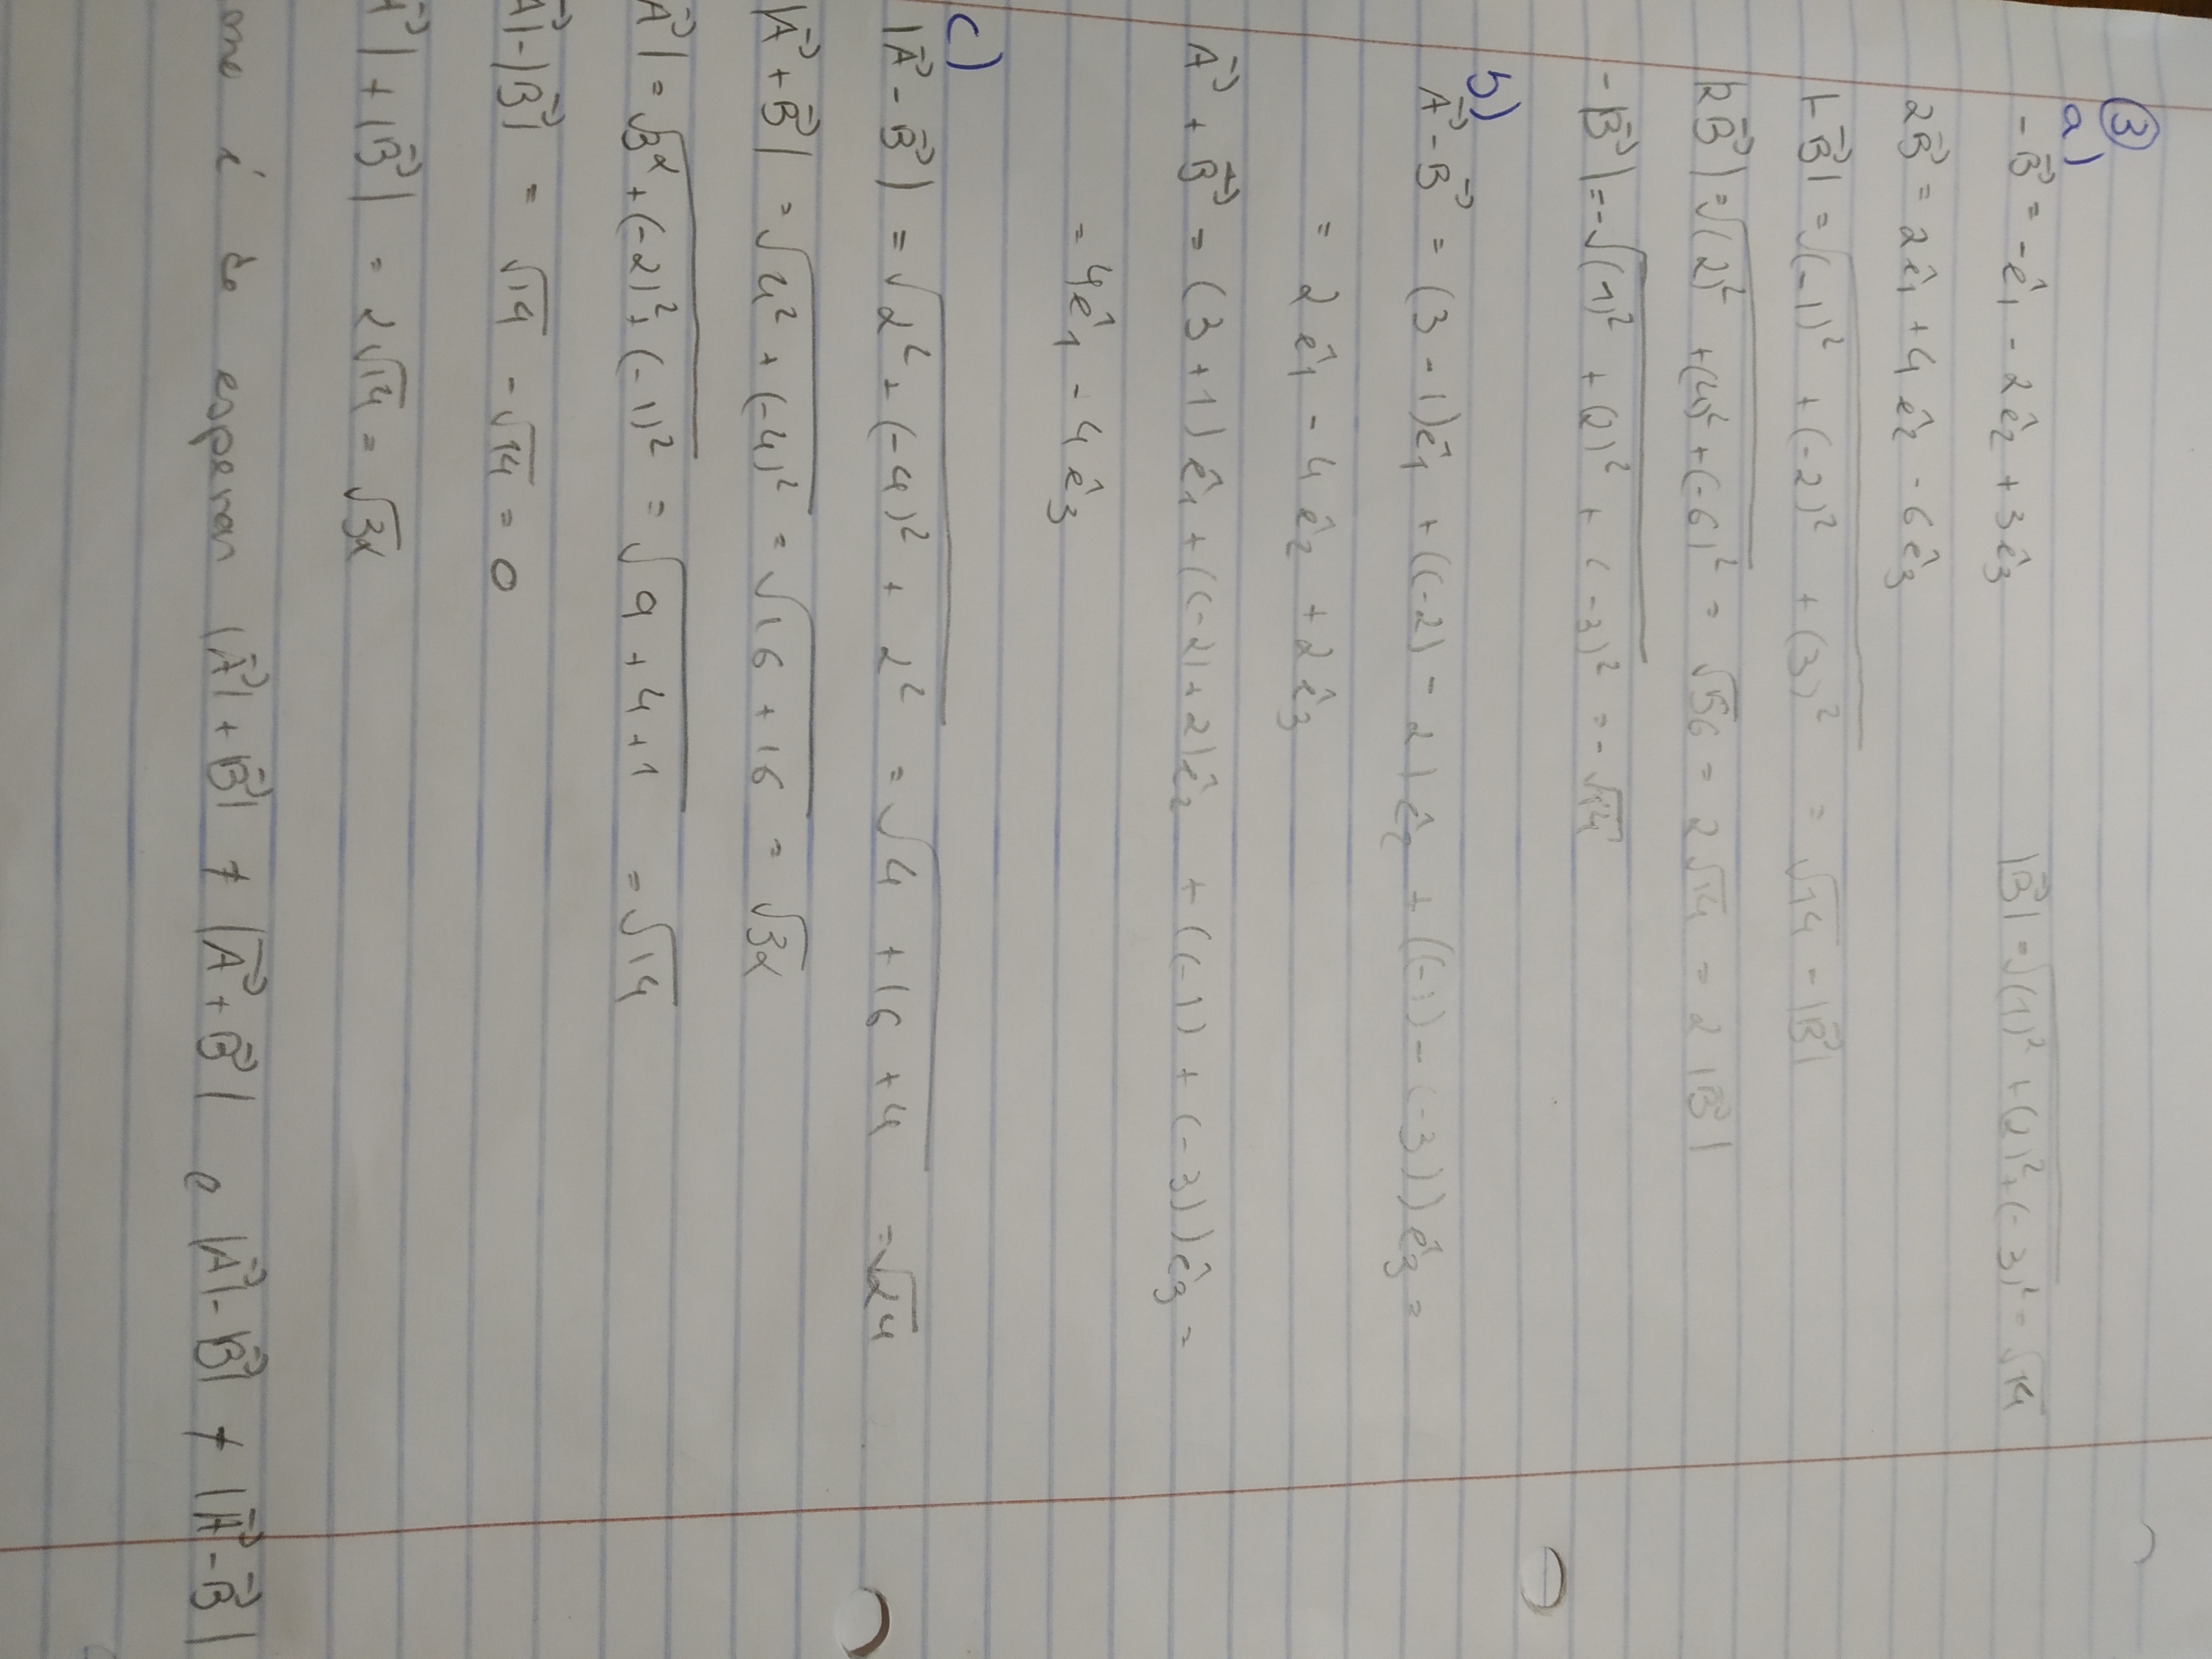 ③
a)
-B⃗ = -ê₁ - 2ê₂ + 3ê₃ |B⃗| = √((1)² + (2)² + (-3)²) = √14
2B⃗ = 2ê₁ + 4ê₂ - 6ê₃
|-B⃗| = √((-1)² + (-2)² + (3)²) = √14 = |B⃗|
|2B⃗| = √((2)² + (4)² + (-6)²) = √56 = 2√14 = 2|B⃗|
-|B⃗| = -√((1)² + (2)² + (-3)²) = -√14
b)
A⃗ - B⃗ = (3 - 1)ê₁ + ((-2) - 2)ê₂ + ((-1) - (-3))ê₃ =
= 2ê₁ - 4ê₂ + 2ê₃
A⃗ + B⃗ = (3 + 1)ê₁ + ((-2) + 2)ê₂ + ((-1) + (-3))ê₃ =
= 4ê₁ - 4ê₃
c)
|A⃗ - B⃗| = √(2² + (-4)² + 2²) = √(4 + 16 + 4) = √24
|A⃗ + B⃗| = √(4² + (-4)²) = √(16 + 16) = √32
A⃗| = √(3² + (-2)² + (-1)²) = √(9 + 4 + 1) = √14
A⃗| - |B⃗| = √14 - √14 = 0
A⃗| + |B⃗| = 2√14 = √32
ome é de esperar |A⃗| + |B⃗| ≠ |A⃗ + B⃗| e |A⃗| - |B⃗| ≠ |A⃗ - B⃗|